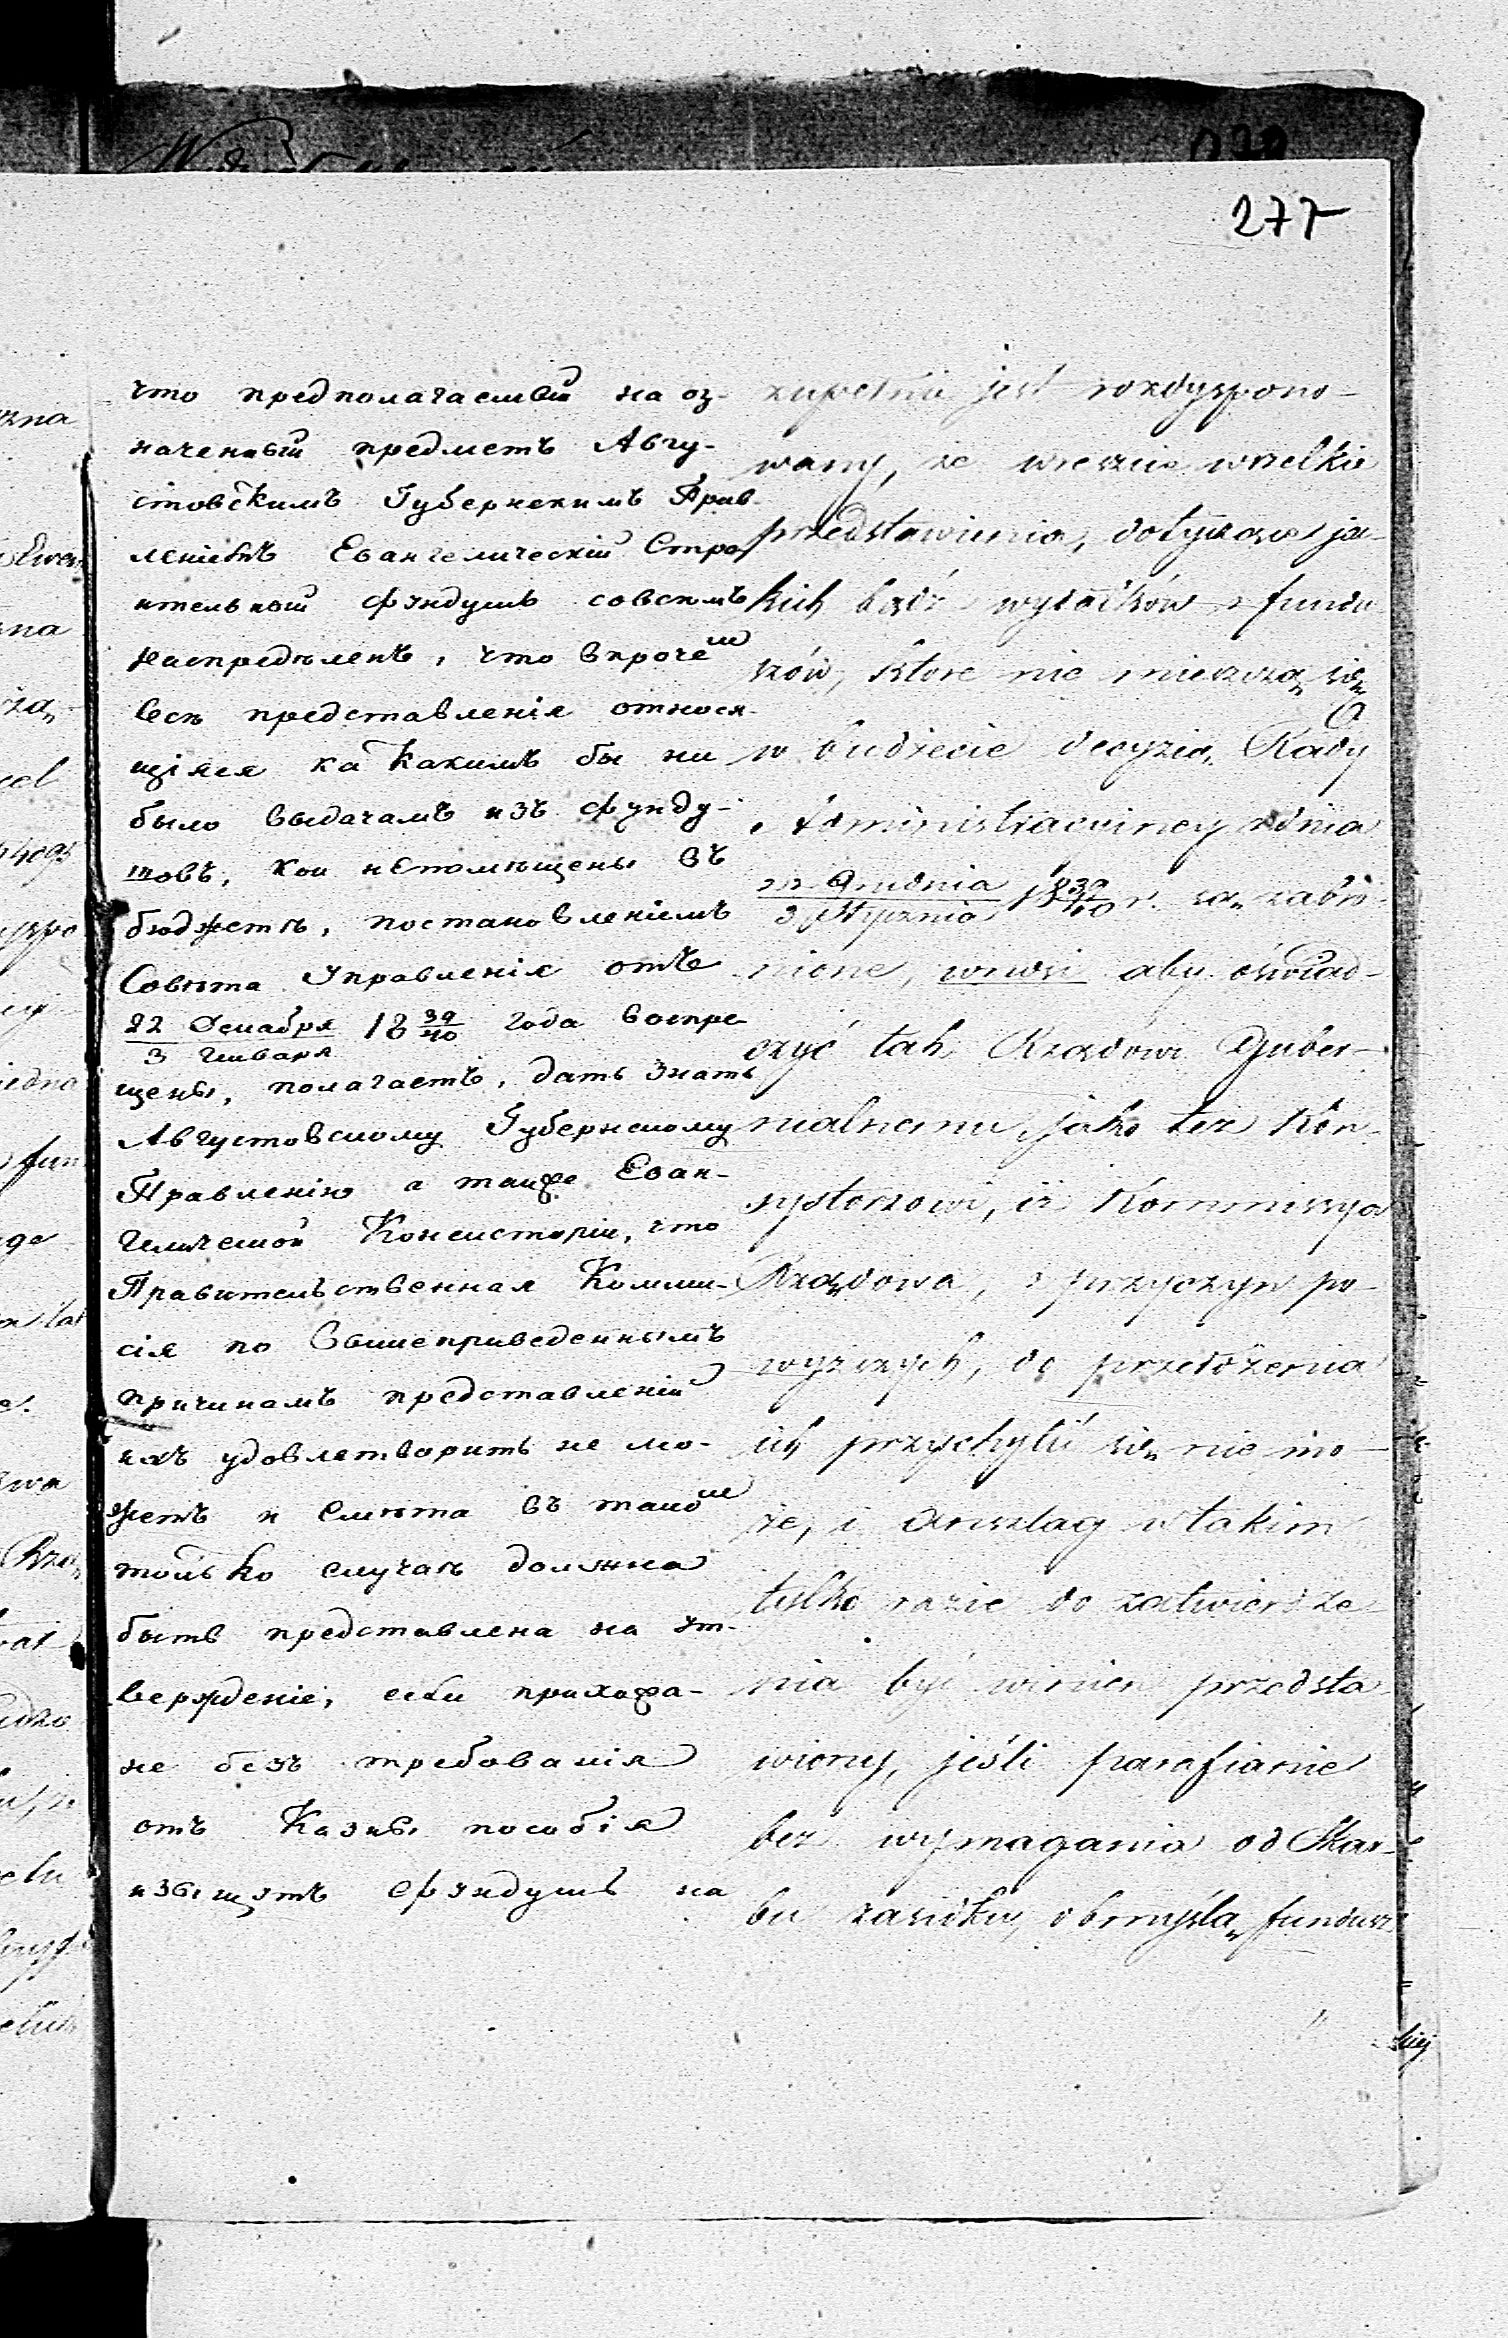 277
что предполагаемый на оз-
наченный предметъ Авгу-
стовскимъ Губернскимъ Прав-
леніемъ Евангелическій Строи
ительный фундушъ совсемъ
распределенъ, что впрочемъ
все представленія относя-
щіяся ка какимъ бы ни
было выдачамъ изъ фунду-
шовъ, кои непомѣщены въ
бюджетѣ, постановленіемъ
Совѣта Управленія отъ
22 Декабря / 3 Января 18 39/40 года воспре
щены, полагаетъ, дать знать
Августовскому Губернскому
Правленію а также Еван-
гелической Консисторіи, что
Правительственная Комми-
сія по вышеприведеннымъ
причинамъ представленій
ихъ удовлетворить не мо-
жетъ и смѣта въ такомъ
только случаѣ должна
быть представлена на ут-
вержденіе, если прихожа-
не безъ требованія
отъ Казны пособія
изыщутъ фундушъ на
zupełnie jest rozdyspono-
wany, że wreszcie wszelkie
przedstawienia, dotyczące ja-
kich bądź wydatków z fundu
szów, które nie mieszczą się
w budżecie decyzią Rady
Administracyjney z dnia
22 Grudnia / 3 Stycznia 18 39/40 r. są zabro-
nione, wnosi aby oświad-
czyć tak Rządowi Guber-
nialnemu, jako też Kon-
systorzowi, iż Kommissya
Rządowa, z przyczyn po-
wyższych, do przełożenia
ich przychylić się nie mo-
że, i anszlag w takim
tylko razie do zatwierdze
nia być winien przedsta-
wiony, jeśli parafianie
bez wymagania od Skar-
bu zasiłku, obmyślą fundusz